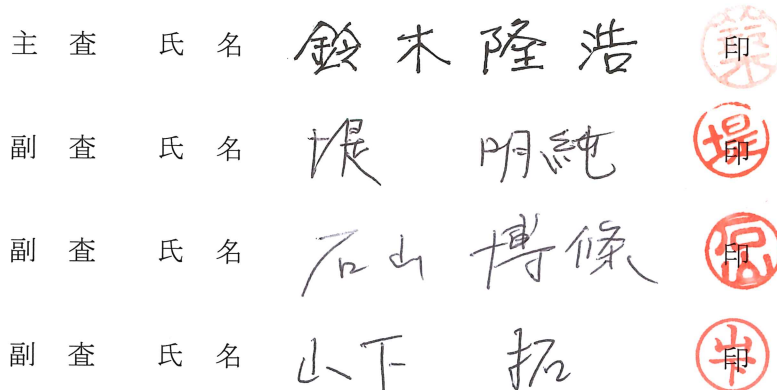 主査 氏名 鈴木隆浩 印
副査 氏名 堤 明純 印
副査 氏名 石山 博條 印
副査 氏名 山下 拓 印